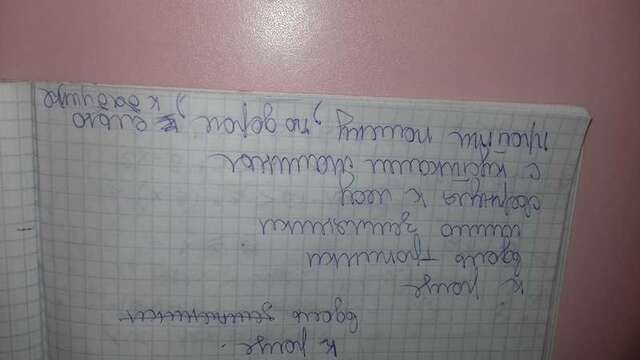 к роще.
вдоль земляники
к роще
вдоль тропинки
мимо земляники
свернуть к лесу
с кустиками малины
пройти поляну, по дороге, к елью
, к бабушке